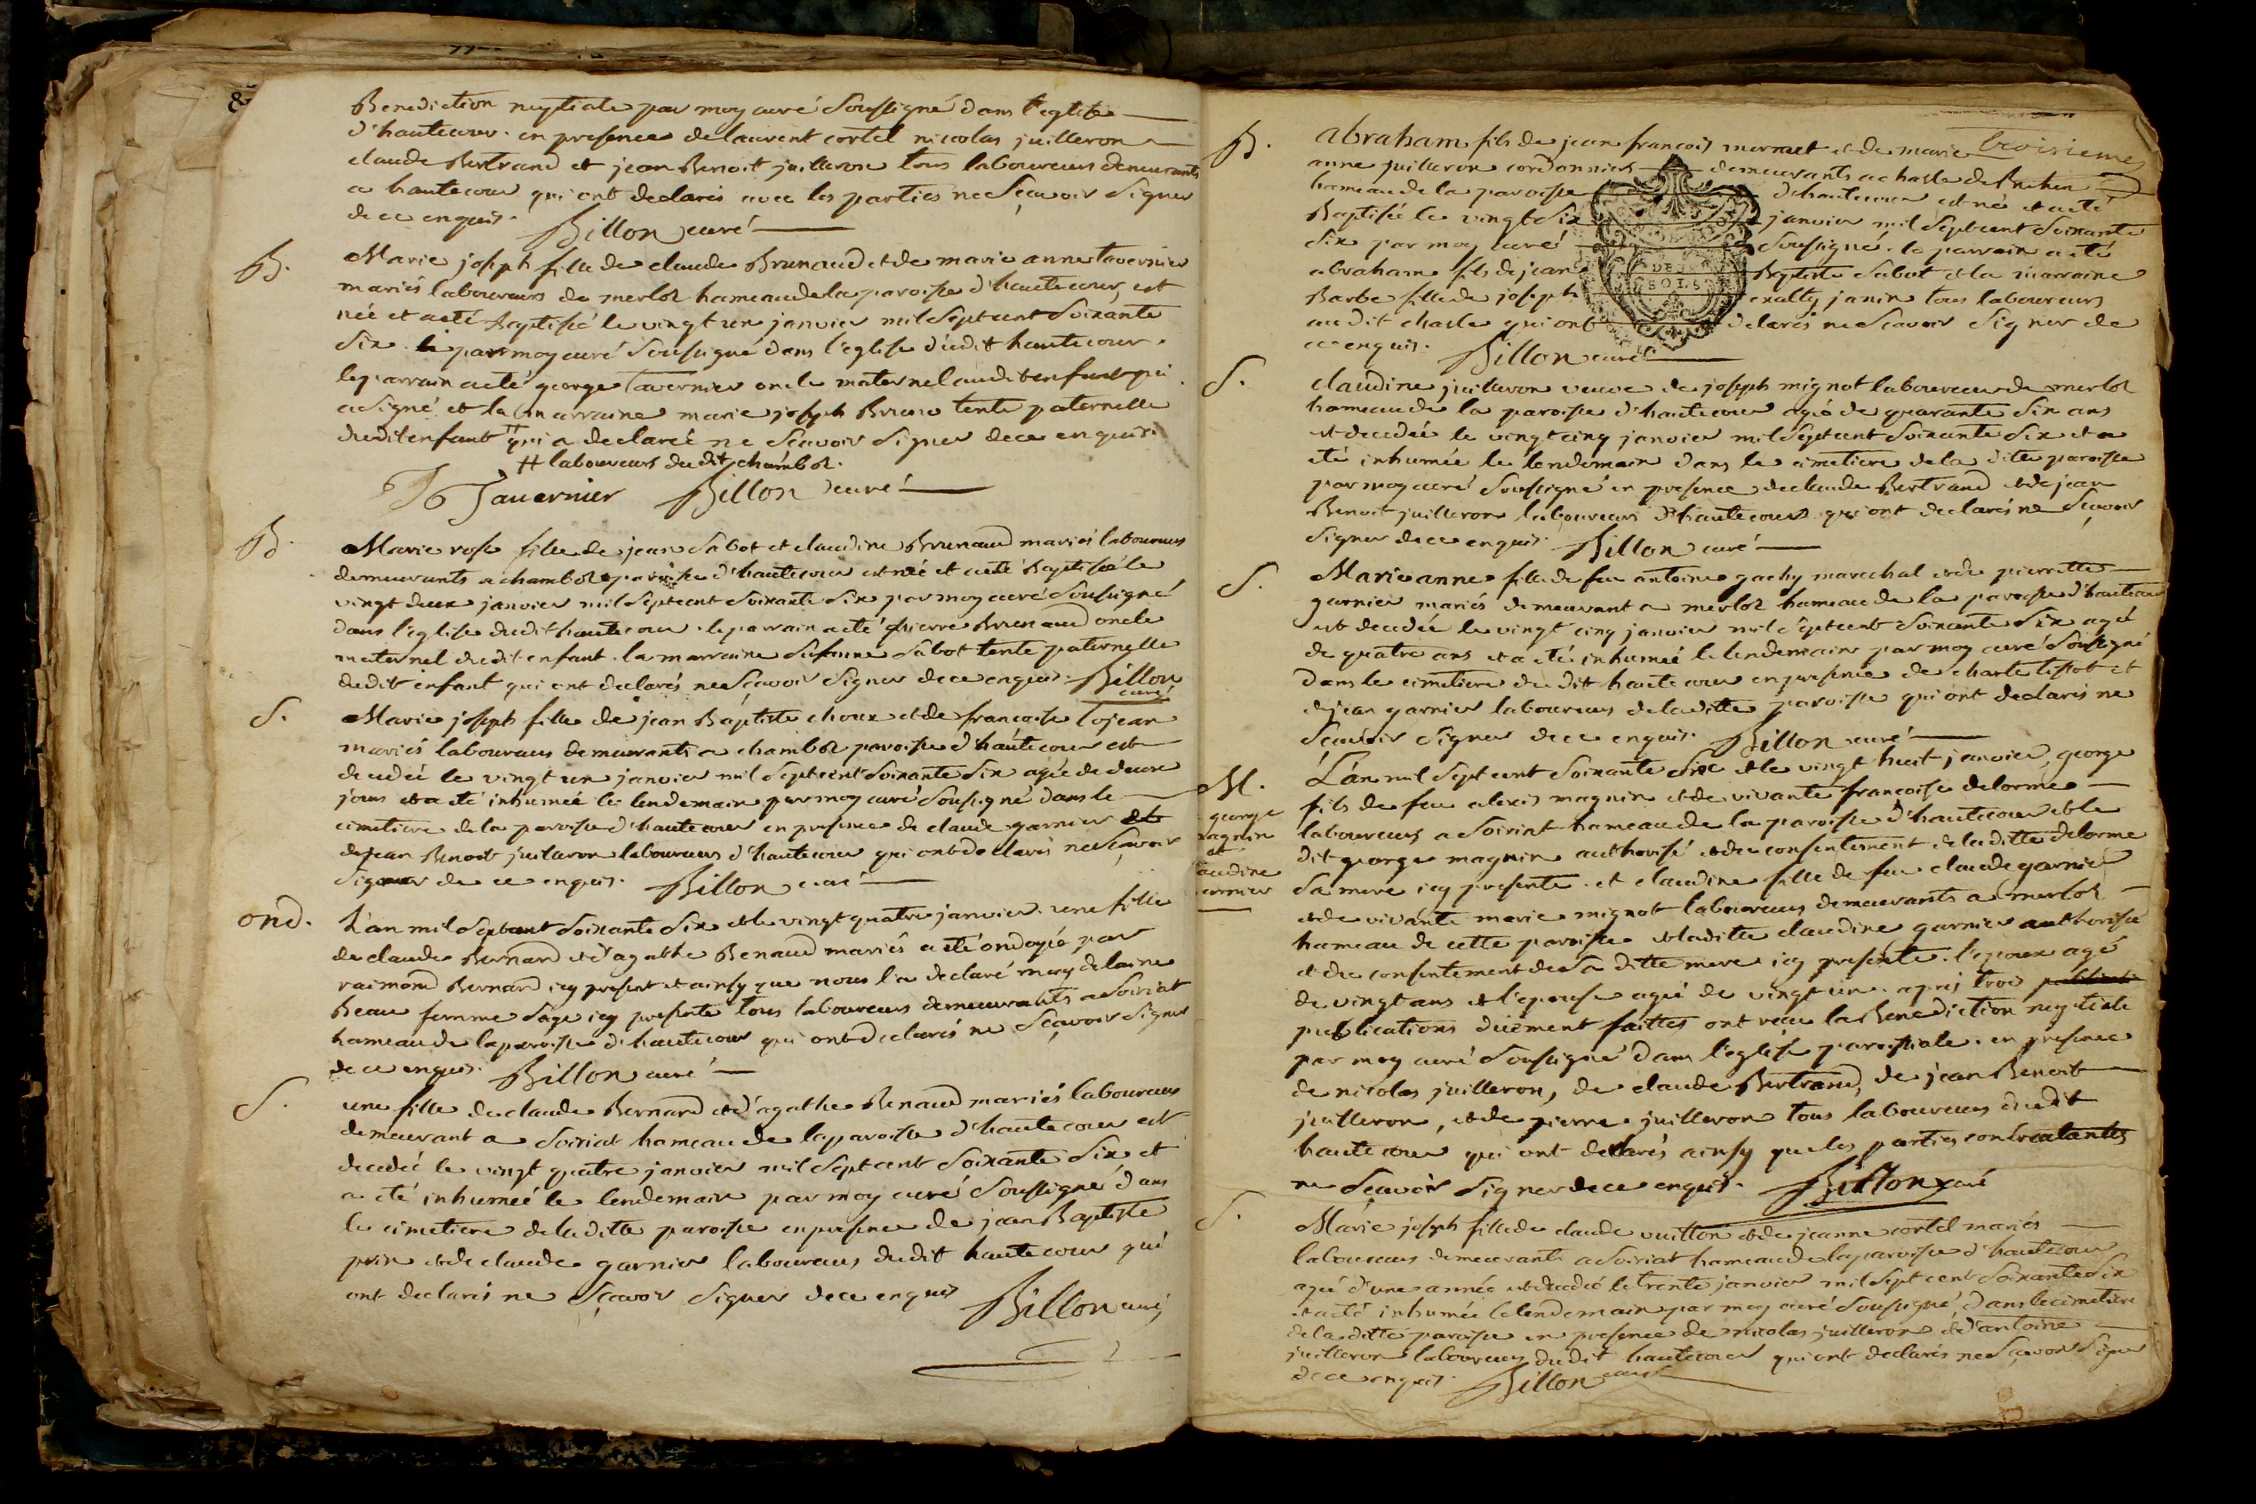 Benediction nuptiale par moy curé soussigné dans l'eglise
d'hautecour. en presence de laurent cortel nicolas juilleron
claude Bertrand et jean Benoit juilleron tous laboureurs demeurants
a hautecour qui ont declarés avec les parties ne sçavoir signer
de ce enquis. Billon curé
B. Marie joseph fille de claude Brunaud et de marie anne tavernier
mariés laboureurs de merloz hameau de la paroisse d'hautecour, est
née et a eté baptisée le vingt un janvier mil sept cent soixante
six par moy curé soussigné dans l'eglise dudit hautecour.
le parrain a eté george tavernier oncle maternel audit enfant qui
a signé et la marraine marie joseph Bruno tente paternelle
dudit enfant # qui a declarée ne sçavoir signer de ce enquis.
# laboureurs dudit chamboz.
Tavernier Billon curé
B. Marie rose fille de jean sabot et claudine Brunaud mariés laboureurs
demeurants a chamboz paroisse d'hautecour est née et a eté Baptisée le
vingt deux janvier mil sept cent soixante six par moy curé soussigné
dans l'eglise dudit hautecour. le parrain a eté pierre Brunaud oncle
maternel dudit enfant. la marraine susanne sabot tente paternelle
dudit enfant qui ont declarés ne sçavoir signer de ce enquis. Billon
curé
S. Marie joseph fille de jean Baptiste choux et de francoise Tojean
mariés laboureurs demeurants a chamboz paroisse d'hautecour est
decedée le vingt un janvier mil sept cent soixante six agée de deux
jours et a eté inhumée le lendemain par moy curé soussigné dans le
cimetiere de la paroisse d'hautecour en presence de claude garnier et
de jean Benoit juilleron laboureurs d'hautecour qui ont declarés ne sçavoir
signer de ce enquis. Billon curé
ond. L'an mil sept cent soixante six et le vingt quatre janvier. une fille
de claude Bernard et d'agathe Benaud mariés a eté ondoyée, par
raimond Bernard icy present et ainsy que nous l'a declaré
Beau femme sage icy presente tous laboureurs demeurants a soiriat
hameau de la paroisse d'hautecour qui ont declarés ne sçavoir signer
de ce enquis. Billon curé
S. une fille de claude Bernard et d'agathe Benaud mariés laboureurs
demeurant a soiriat hameau de la paroisse d'hautecour est
decedée le vingt quatre janvier mil sept cent soixante six et
a eté inhumeé le lendemain par moy curé soussigné dans
le cimetiere de laditte paroisse en presence de jean Baptiste
poix et de claude garnier laboureurs dudit hautecour qui
ont declarés ne sçavoir signer de ce enquis Billon curé
troisieme
B. abraham fils de jean françois mermet et de marie
anne juilleron cordonniers demeurants au chasle
hameau de la paroisse d'hautecour est né et a eté
Baptisé le vingt six janvier mil sept cent soixante
six par moy curé soussigné. le parrain a eté
abraham fils de jean Baptiste sabot et la marraine
Barbe fille de joseph janin tous laboureurs
au dit chasle qui ont declarés ne sçavoir signer de
ce enquis. Billon curé
S. claudine juilleron veuve de joseph mignot laboureur de merloz
hameau de la paroisse d'hautecour agée de quarante six ans
est decedée le vingt cinq janvier mil sept cent soixante six et a
eté inhumée le lendemain dans le cimetiere de la ditte paroisse
par moy curé soussigné en presence de claude Bertrand et de jean
Benoit juilleron laboureurs d'hautecour qui ont declarés ne sçavoir
signer de ce enquis. Billon curé
S. Marie anne fille de feu antoine gachy marechal et de pierrette
garnier mariés demeurant a merloz hameau de la paroisse d'hautecour
est decedée le vingt cinq janvier mil sept cent soixante six agé
de quatre ans et a eté inhumeé le lendemain par moy curé soussigné
dans le cimetiere du dit hautecour en presence de charle tissot et
de jean garnier laboureurs de laditte paroisse qui ont declarés ne
sçavoir signer de ce enquis. Billon curé
M. L'an mil sept cent soixante six et le vingt huit janvier, george
george magnin et claudine garnier
fils de feu alexis magnin et de vivante francoise delorme
laboureurs a soiriat hameau de la paroisse d'hautecour et le
dit george magnin authorisé et du consentement de laditte delorme
sa mere icy presente. et claudine fille de feu claude garnier
et de vivante marie mignot laboureurs demeurants a merloz
hameau de cette paroisse et laditte claudine garnier authorisée
et du consentement de sa ditte mere icy presente. l'epoux agé
de vingt ans et l'epouse agée de vingt un. après trois
publications duëment faittes ont reçu la Benediction nuptiale
par moy curé soussigné dans l'eglise paroissiale. en presence
de nicolas juilleron, de claude Bertrand, de jean Benoit
juilleron, et de pierre juilleron tous laboureurs dudit
hautecour qui ont declarés ainsy que les parties contractantes
ne sçavoir signer de ce enquis. Billon curé
S. Marie joseph fille de claude vuitton et de jeanne cortel mariés
laboureurs demeurants a soiriat hameau de la paroisse d'hautecour
agée d'une année est decedée le trente janvier mil sept cent soixante six
et a eté inhumée le lendemain par moy curé soussigné dans le cimetiere
de la ditte paroisse en presence de nicolas juilleron et d'antoine
juilleron laboureurs dudit hautecour qui ont declarés ne sçavoir signer
de ce enquis. Billon curé